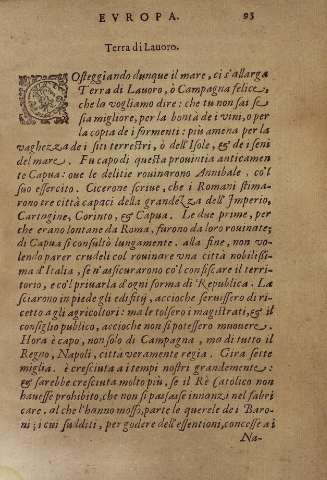 EVROPA. 93
Terra di Lauoro.
COsteggiando dunque il mare, ci s'allarga
Terra di Lauoro, ò Campagna felice,
che la vogliamo dire: che tu non sai se
sia migliore, per la bontà de i vini, o per
la copia de i formenti: più amena per la
vaghezza de i siti terrestri, ò dell'Isole, & de i seni
del mare. Fu capo di questa prouintia anticamen
te Capua: oue le delitie rouinarono Annibale, co'l
suo essercito. Cicerone scriue, che i Romani stima-
rono tre città capaci della grandezza dell'Imperio,
Cartagine, Corinto, & Capua. Le due prime, per
che erano lontane da Roma, furono da loro rouinate;
di Capua si consultò lungamente. alla fine, non vo-
lendo parer crudeli col rouinare vna città nobilissi-
ma d'Italia, se n'assicurarono co'l confiscare il terri-
torio, e co'l priuarla d'ogni forma di Republica. La
sciarono in piede gli edifitij, accioche seruissero di ri-
cetto agli agricoltori: ma le tolsero i magistrati, & il
consiglio publico, accioche non si potessero muouere.
Hora è capo, non solo di Campagna, ma di tutto il
Regno, Napoli, città veramente regia. Gira sette
miglia. è cresciuta a i tempi nostri grandemente:
& sarebbe cresciuta molto più, se il Rè Catolico non
hauesse prohibito, che non si passasse innanzi nel fabri
care. al che l'hanno mosso, parte le querele de i Baro-
ni; i cui sudditi, per godere dell'essentioni, concesse a i
Na-